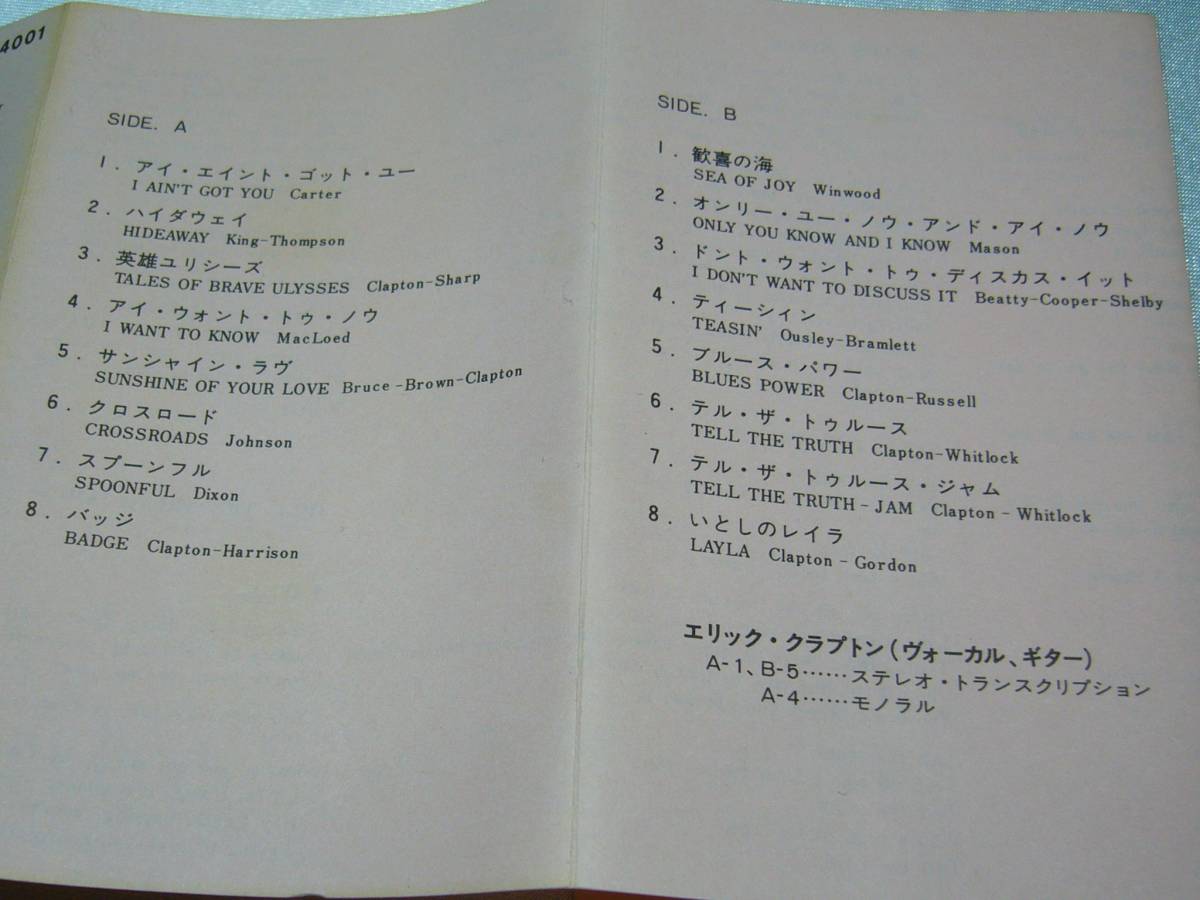 4001
SIDE. A
1. アイ・エイント・ゴット・ユー
I AIN'T GOT YOU Carter
2. ハイダウェイ
HIDEAWAY King-Thompson
3. 英雄ユリシーズ
TALES OF BRAVE ULYSSES Clapton-Sharp
4. アイ・ウォント・トゥ・ノウ
I WANT TO KNOW MacLoed
5. サンシャイン・ラヴ
SUNSHINE OF YOUR LOVE Bruce-Brown-Clapton
6. クロスロード
CROSSROADS Johnson
7. スプーンフル
SPOONFUL Dixon
8. バッジ
BADGE Clapton-Harrison
SIDE. B
1. 歓喜の海
SEA OF JOY Winwood
2. オンリー・ユー・ノウ・アンド・アイ・ノウ
ONLY YOU KNOW AND I KNOW Mason
3. ドント・ウォント・トゥ・ディスカス・イット
I DON'T WANT TO DISCUSS IT Beatty-Cooper-Shelby
4. ティーシィン
TEASIN' Ousley-Bramlett
5. ブルース・パワー
BLUES POWER Clapton-Russell
6. テル・ザ・トゥルース
TELL THE TRUTH Clapton-Whitlock
7. テル・ザ・トゥルース・ジャム
TELL THE TRUTH-JAM Clapton-Whitlock
8. いとしのレイラ
LAYLA Clapton-Gordon
エリック・クラプトン(ヴォーカル、ギター)
A-1、B-5……ステレオ・トランスクリプション
A-4……モノラル